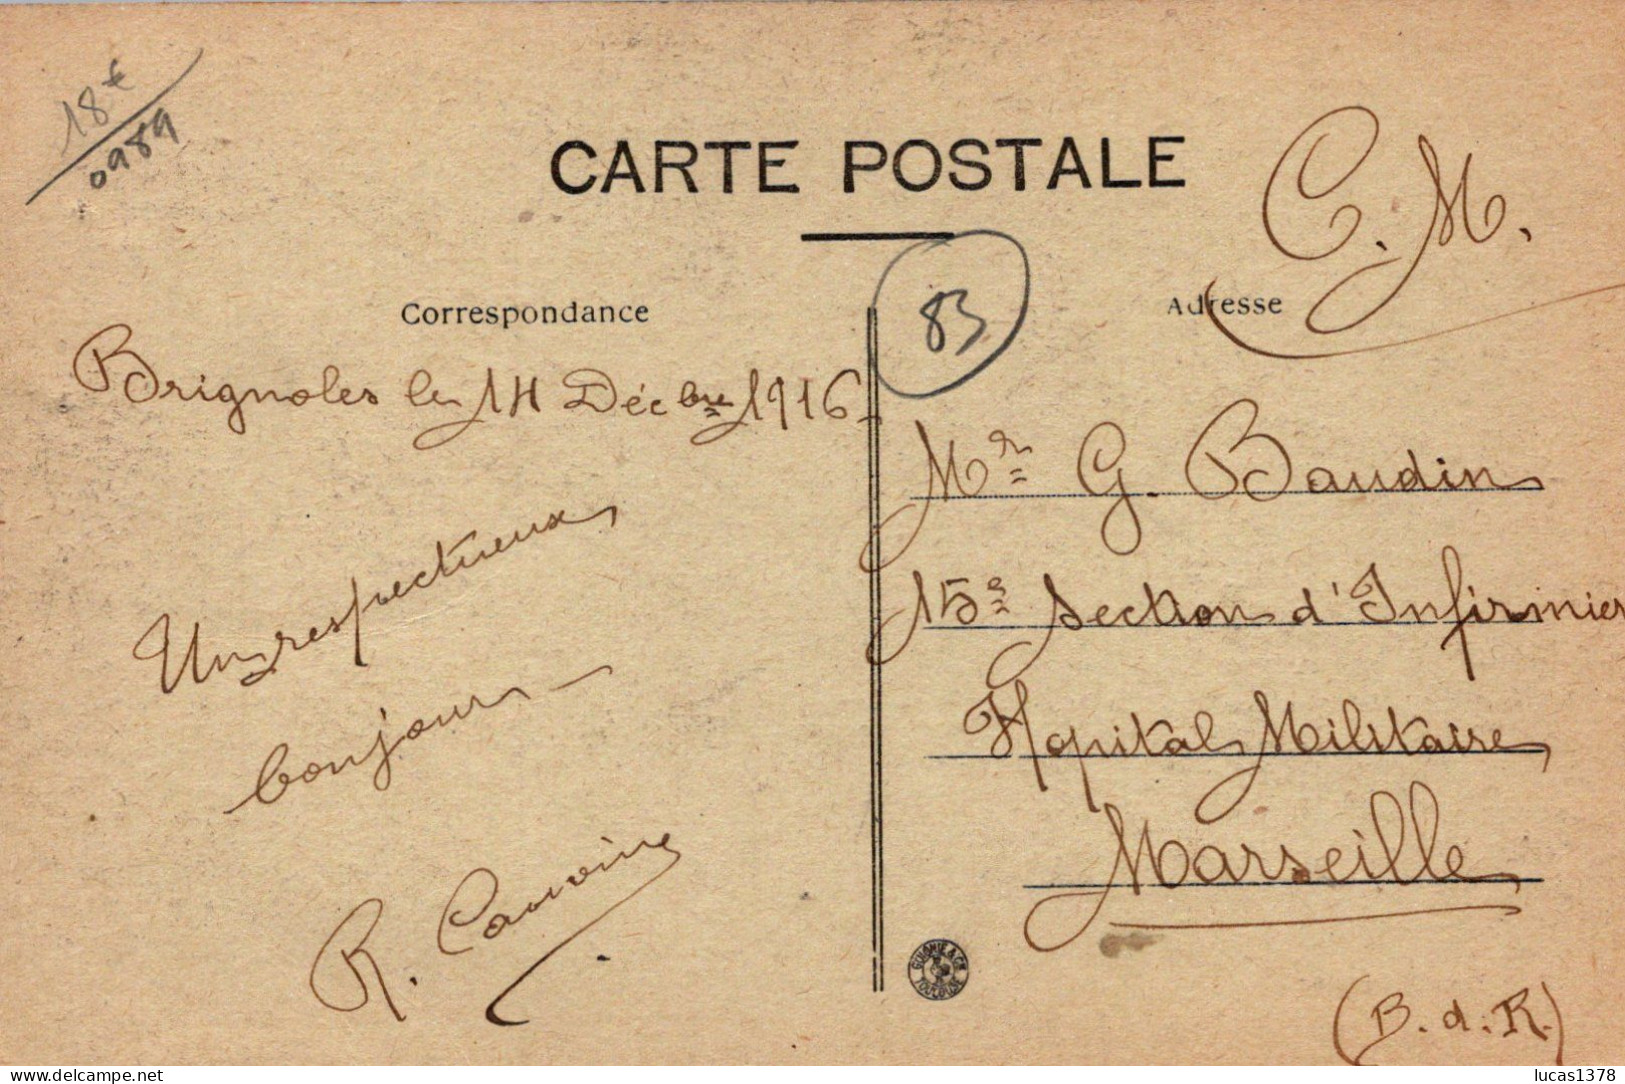 18€
0989
CARTE POSTALE
C. M.
Correspondance
83
Adresse
Brignoles le 14 Décbre 1916
Un respectueux
bonjour
R. Cauvin
Mr G. Baudin
15e Section d'Infirmier
Hopital Militaire
Marseille
(B. d. R.)
TOULOUSE
delcampe.net
lucas1378